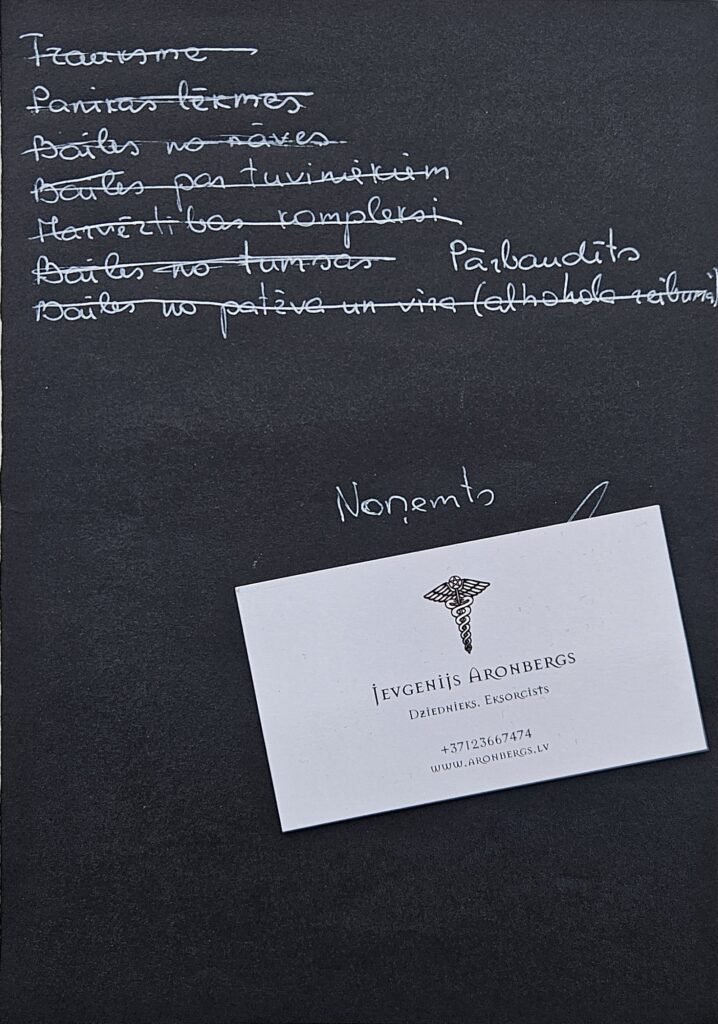 Trauksme
Panikas lēkmes
Bailes no nāves
Bailes par tuviniekiem
Mazvērtības kompleksi
Bailes no tumsas Pārbaudīts
Bailes no patēva un vīra (alkohola reibumā)
Noņemts
Jevgenijs Aronbergs
Dziednieks. Eksorcists
+37123667474
www.aronbergs.lv